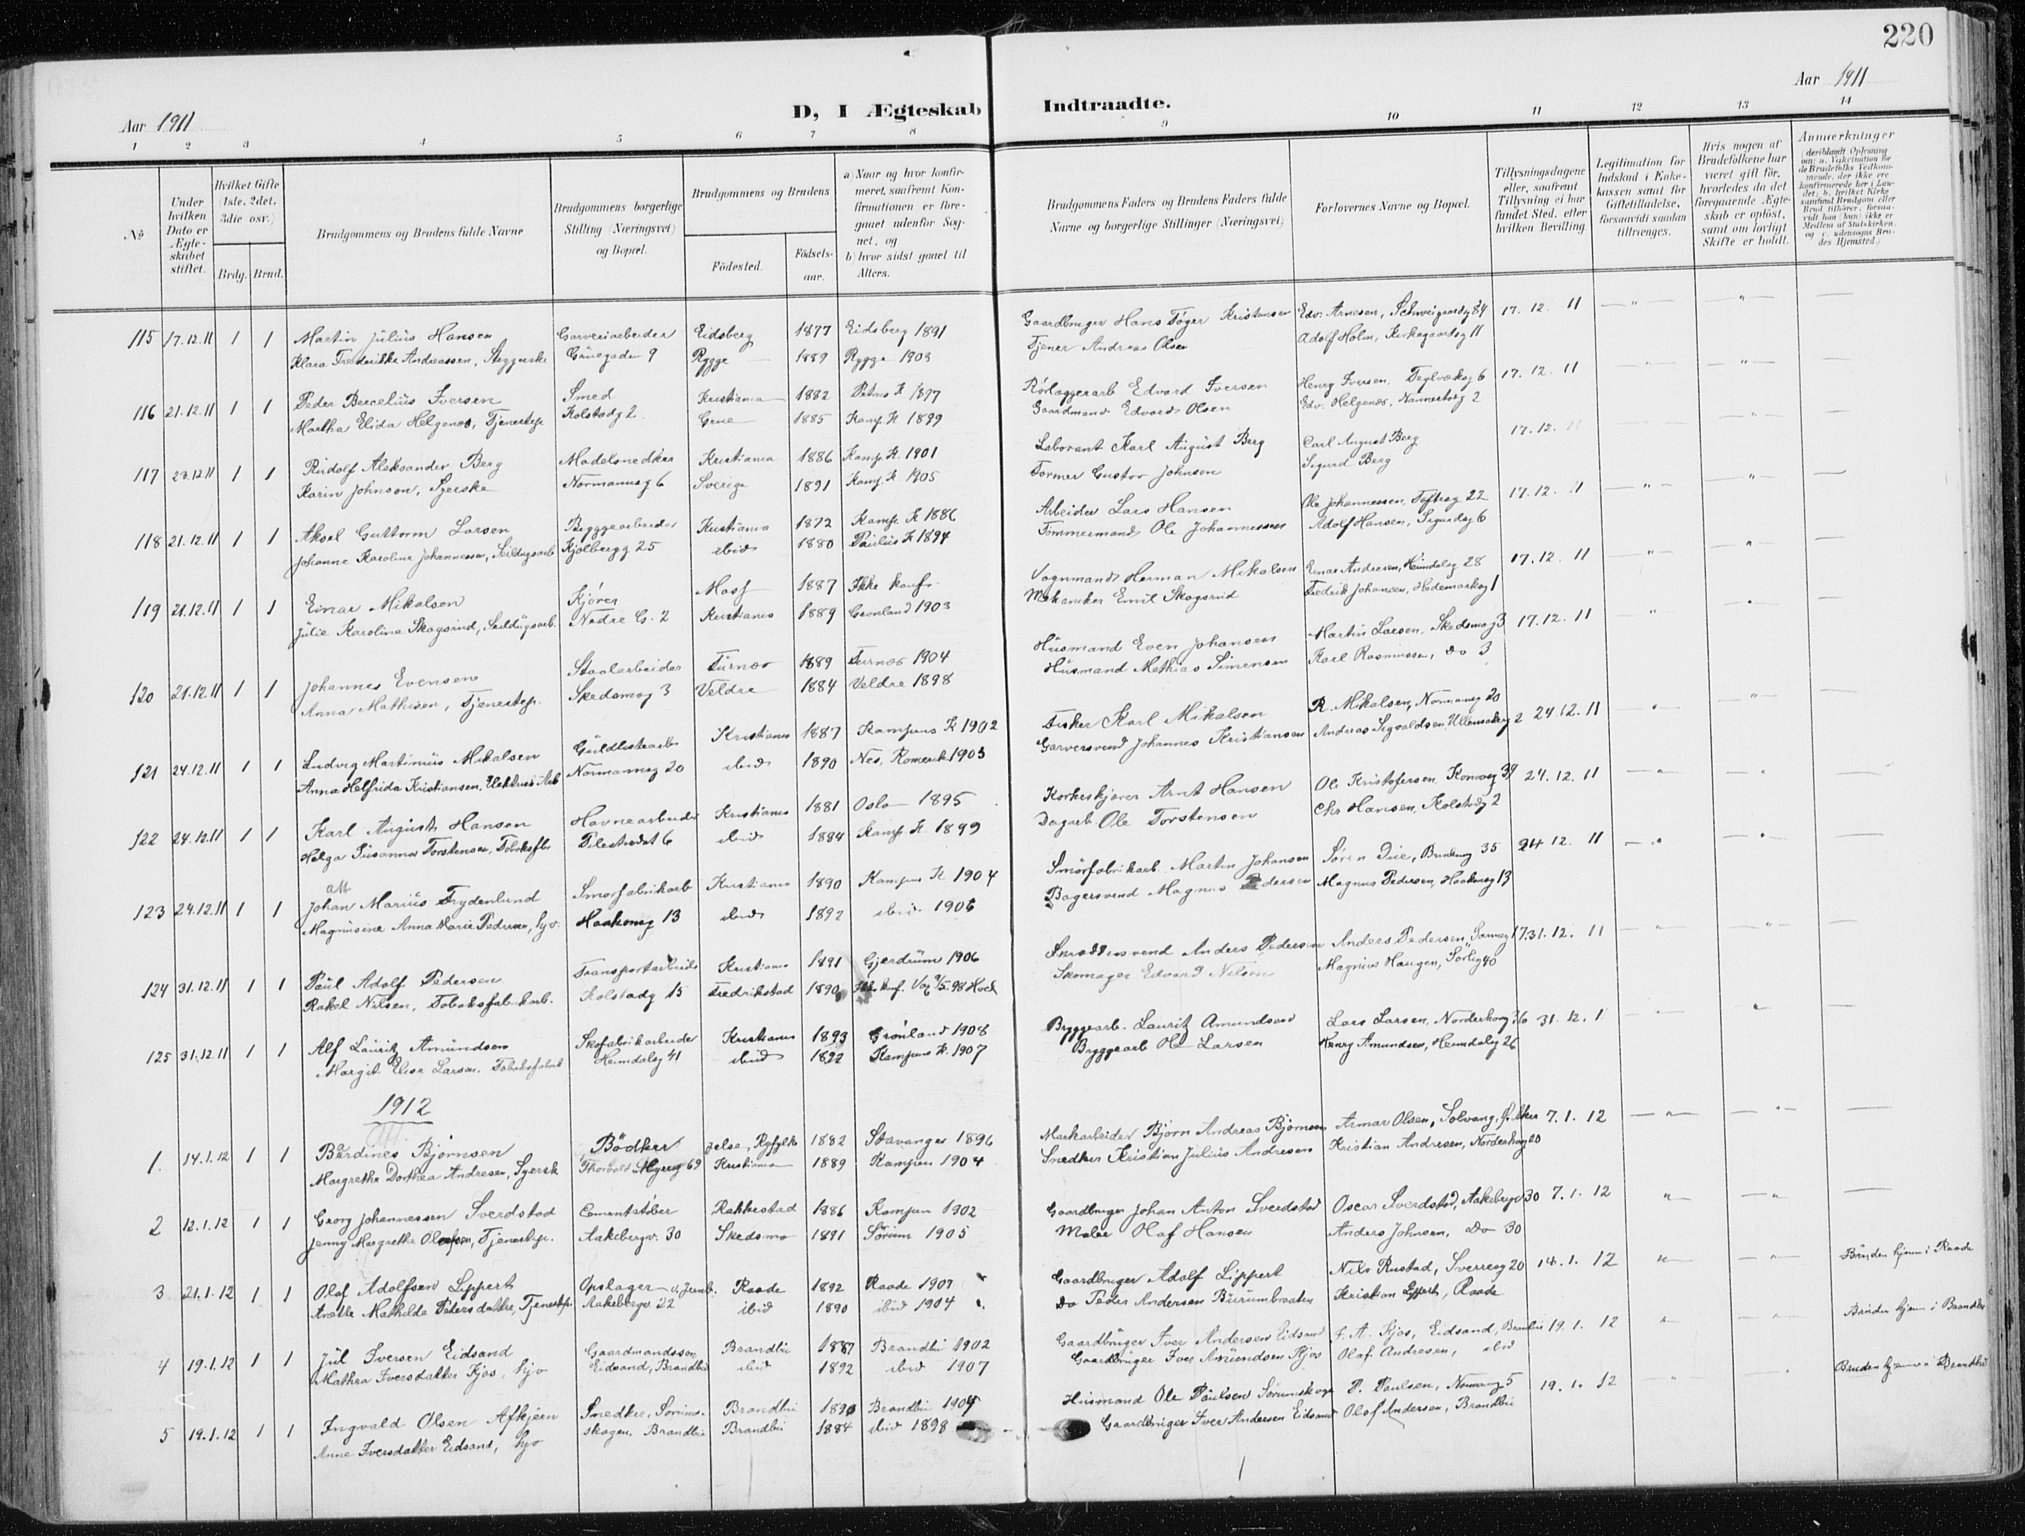 220
Aar 1911
D, I Ægteskab Indtraadte.
Aar 1911
1 2 3 4 5 6 7 8 9 10 11 12 13 14
No
Under hvilken Dato er Ægteskabet stiftet.
Hvilket Gifte (1ste, 2det, 3die osv.)
Brdg. Brud.
Brudgommens og Brudens fulde Navne
Brudgommens borgerlige Stilling (Næringsvei) og Bopæl.
Brudgommens og Brudens
Födested. Födsels-aar.
a) Naar og hvor konfirmeret, saafremt Konfirmationen er foregaaet udenfor Sognet, og
b) hvor sidst gaaet til Alters.
Brudgommens Faders og Brudens Faders fulde Navne og borgerlige Stillinger (Næringsvei)
Forlovernes Navne og Bopæl.
Tillysningsdagene eller, saafremt Tillysning ei har fundet Sted, efter hvilken Bevilling.
Legitimation for Indskud i Enkekassen samt for Giftetilladelse, forsaavidt saadan tiltrænges.
Hvis nogen af Brudefolkene har været gift før, hvorledes da det foregaaende Ægteskab er opløst, samt om lovligt Skifte er holdt.
Anmærkninger
115 17.12.11 1 1 Martin Julius Hansen Garveriarbeider Eidsberg 1877 Eidsberg 1891 Gaardbruger Hans Tøger Kristensen Edv. Arnesen, Schweigaardsg 84 17. 12. 11
Klara Fredrikke Andreassen, Grüegaden 9 Rygge 1889 Rygge 1903 Tjener Andreas Olsen Adolf Holm, Kirkegaardsg 11
116 21.12.11 1 1 Peder Bercelius Iversen Smed Kristiania 1882 Petrus K 1897 Rörlæggerarb Edvard Iversen Henry Iversen, Teglverksg 6 17. 12. 11
Martha Elida Helgenes, Tjenestep. Kolstadg 2 Grue 1885 Kamp. K 1899 Gaardmand Edvard Olsen Edv. Helgenes, Nannestadg 2
117 23.12.11 1 1 Rudolf Aleksander Berg Modelsnedker Kristiania 1886 Kamp. K. 1901 Laborant Karl August Berg Carl August Berg 17. 12. 11
Karin Johnson, Syerske Normannsg 6 Sverige 1891 Kamp. K 1905 Former Gustav Johnson Sigurd Berg
118 21.12.11 1 1 Aksel Guttorm Larsen Byggearbeider Kristiania 1872 Kamp. K 1886 Arbeider Lars Hansen Ole Johannessen, Toftesg 22 17. 12. 11
Johanne Karoline Johannessen, Kjølbergg 25 ibid 1880 Paulus K 1894 Tømmermand Ole Johannessen Adolf Hansen, Sigurdsg 6
119 21.12.11 1 1 Einar Mikalsen Kjører Moss 1887 Ikke konf. Vognmand Herman Mikalsen Einar Andresen, Heimdalsg 28 17. 12. 11
Julie Karoline Skogsrud, Nedre G. 2 Kristiania 1889 Grønland 1903 Mekaniker Emil Skogsrud Fredrik Johansen, Hedemarksg 1
120 21.12.11 1 1 Johannes Evensen Staalarbeider Furnes 1889 Furnes 1904 Husmand Even Johansen Martin Larsen, Skedsmog 3 17. 12. 11
Anna Mathisen, Tjenestep. Skedsmog 3 Veldre 1884 Veldre 1898 Husmand Mathias Simensen Karl Rasmussen, do 3
121 24.12.11 1 1 Ludvig Martinius Mikalsen Guldlistearb Kristiania 1887 Kampens K 1902 Fisker Karl Mikalsen R. Mikalsen, Normansg 20 24. 12. 11
Anna Helfrida Kristiansen, Normansg 20 ibid 1890 Nes, Romerik 1905 Garversvend Johannes Kristiansen Andreas Sigvaldsen, Ullensakerg 2
122 24.12.11 1 1 Karl August Hansen Havnearbeider Kristiania 1881 Oslo 1895 Korkeskjærer Arnt Hansen Ole Kristofersen, Konowsg 39 24. 12. 11
Helga Susanna Torstensen, Pilestrædet 6 ibid 1884 Kamp. K 1899 Dagarb. Ole Torstensen Chr Hansen, Kolstadg 2
123 24.12.11 1 1 Johan Marius Frydenlund Smørfabrikarb Kristiania 1890 Kampens K 1904 Smørfabrikarb. Martin Johansen Søren 35 24 12. 11
Magnusine Anna Marie Pedersen, Haakonsg 13 ibid 1892 ibid 1906 Bagersvend Magnus Pedersen Magnus Pedersen, Haakonsg 13
124 31.12.11 1 1 Paul Adolf Pedersen Transportarbeider Kristiania 1891 Gjerdrum 1906 Skræddersvend Anders Pedersen Anders Pedersen, 31. 12. 11
Rakel Nilsen, Tobaksfabrikarb. Kolstadg 15 Fredrikstad 1890 Skomager Edvard Nilsen Magnus Haugen, Sørlig 40
125 31.12.11 1 1 Alf Lauritz Amundsen Skofabrikarbeider Kristiania 1893 Grønland 1908 Byggearb. Lauritz Amundsen Lars Larsen, Norderhovg 26 31. 12. 1
Margit Elise Larsen, Tobaksfabrik Heimdalsg 41 ibid 1892 Kampens K. 1907 Bryggearb Ole Larsen Henry Amundsen, Heimdalsg 26
1912
1. 14.1.12 1 1 Berdines Bjørnsen Bödker Jelse, Ryfylke 1882 Stavanger 1896 Markarbeider Bjørn Andreas Bjørnsen Armar Olsen, Solvang, 7. 1. 12
Margrethe Dorthea Andresen, Syersk Thorvald Meyersg 69 Kristiania 1889 Kampen 1904 Snedker Kristian Julius Andresen Kristian Andresen, Norderhovg 20
2 12.1.12 1 1 Georg Johannessen Sverdstad Cementstøber Rakkestad 1886 Kampen 1902 Gaardbruger Johan Anton Sverdstad Oscar Sverdstad, Aakebergv 30 7. 1. 12
Jenny Margrethe Olafsen, Tjenestep. Aakebergv. 30 Skedsmo 1891 Sörum 1905 Maler Olaf Hansen Anders Johnsen, do 30
3 21.1.12 1 1 Olaf Adolfsen Lippert Opslager v. Jernb. Raade 1892 Raade 1907 Gaardbruger Adolf Lippert Nils Rustad, Sverresg 20 14. 1. 12 Bruden hjem i Raade
Anette Mathilde Pedersdatter, Tjenestep. Aakebergv 22 ibid 1890 ibid 1904 do Peder Andersen Burumbraaten Kristian Lippert, Raade
4 19.1.12 1 1 Jul Iversen Eidsand Gaardmandssøn Brandbu 1887 Brandbu 1902 Gaardbruger Iver Andersen Eidsand I. A. Kjos, Eidsand, Brandbu 19. 1. 12 Bruden hjem i Brandbu
Mathea Iversdatter Kjos, Eidsand, Brandbu ibid 1892 ibid 1907 Gaardbruger Iver Amundsen Kjos Olaf Andresen, ibid
5 19.1.12 1 1 Ingvald Olsen Afkjern Snedker, Sørums- Brandbu 1890 Brandbu 1904 Husmand Ole Paulsen Sørumskogen P. Paulsen, Normansg 5 19. 1. 12 Bruden hjemme i Brandbu
Anne Iversdatter Eidsand, skogen, Brandbu Brandbu 1884 ibid 1898 Gaardbruger Iver Andersen Eidsand Olaf Andersen, Brandbu